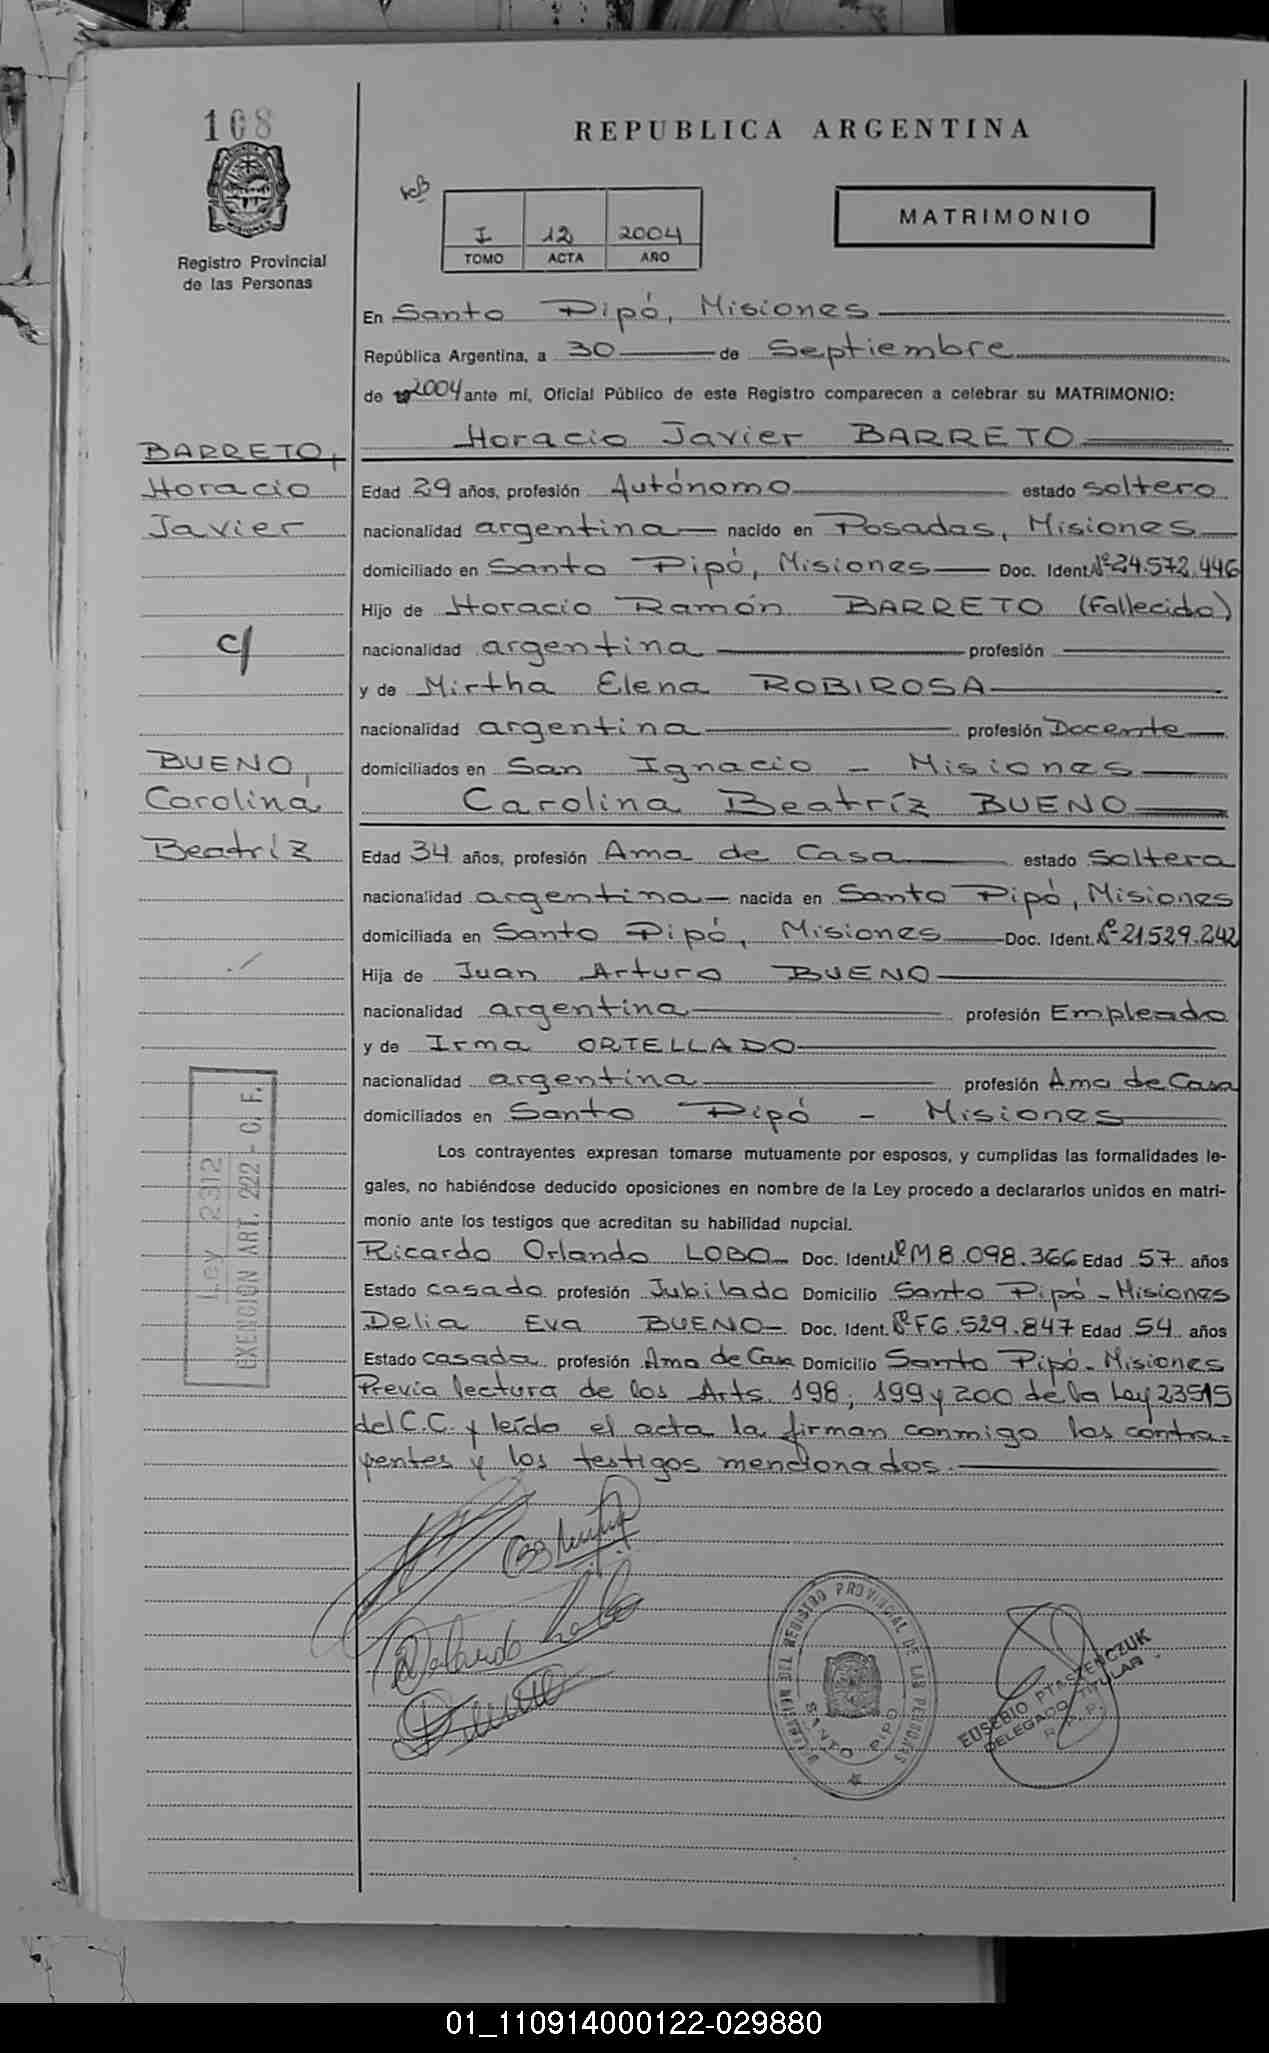 108
REPUBLICA ARGENTINA
I 12 2004
TOMO ACTA AÑO
MATRIMONIO
Registro Provincial
de las Personas
En Santo Pipó, Misiones
República Argentina, a 30 de Septiembre
de 2004 ante mí, Oficial Público de este Registro comparecen a celebrar su MATRIMONIO:
Horacio Javier BARRETO
BARRETO,
Horacio
Javier
c/
BUENO,
Carolina
Beatríz
Edad 29 años, profesión Autónomo estado soltero
nacionalidad argentina nacido en Posadas, Misiones
domiciliado en Santo Pipó, Misiones Doc. Ident. Nº 24.572.446
Hijo de Horacio Ramón BARRETO (Fallecido)
nacionalidad argentina profesión
y de Mirtha Elena ROBIROSA
nacionalidad argentina profesión Docente
domiciliados en San Ignacio - Misiones
Carolina Beatríz BUENO
Edad 34 años, profesión Ama de Casa estado soltera
nacionalidad argentina nacida en Santo Pipó, Misiones
domiciliada en Santo Pipó, Misiones Doc. Ident. Nº 21.529.242
Hija de Juan Arturo BUENO
nacionalidad argentina profesión Empleado
y de Irma ORTELLADO
nacionalidad argentina profesión Ama de Casa
domiciliados en Santo Pipó - Misiones
Los contrayentes expresan tomarse mutuamente por esposos, y cumplidas las formalidades le-
gales, no habiéndose deducido oposiciones en nombre de la Ley procedo a declararlos unidos en matri-
monio ante los testigos que acreditan su habilidad nupcial.
Ricardo Orlando LOBO Doc. Ident. Nº M8.098.366 Edad 57 años
Estado casado profesión Jubilado Domicilio Santo Pipó - Misiones
Delia Eva BUENO Doc. Ident. Nº F6.529.847 Edad 54 años
Estado casada profesión Ama de Casa Domicilio Santo Pipó - Misiones
Previa lectura de los Arts. 198, 199 y 200 de la Ley 23515
del C.C. y leído el acta la firman conmigo los contra=
yentes y los testigos mencionados.
Ley 2312
EXENCION ART. 222 - C. F.
DELEGACION DEL REGISTRO PROVINCIAL DE LAS PERSONAS
SANTO PIPO
EUSEBIO PTASZENCZUK
DELEGADO TITULAR
R. P. P.
01_110914000122-029880